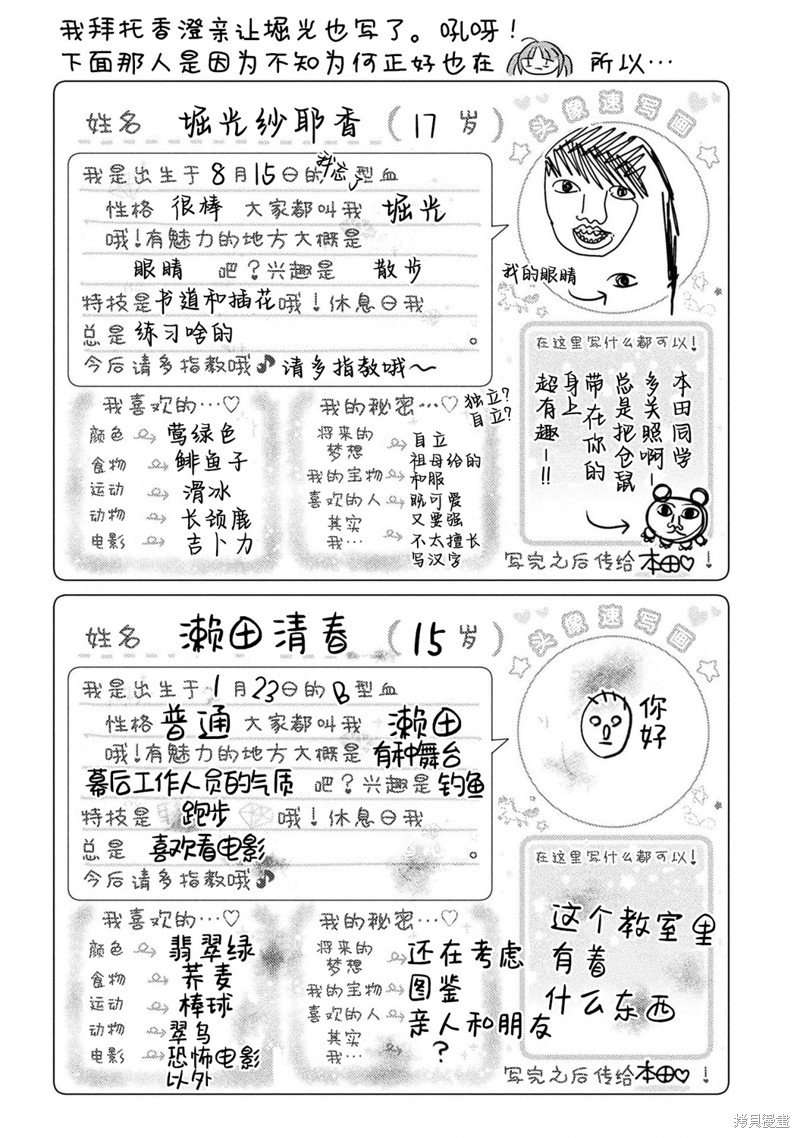 我拜托香澄亲让堀光也写了。吼呀！
下面那人是因为不知为何正好也在 所以…
姓名 堀光纱耶香（17岁）
头像速写画
我是出生于8月15日的我忘了型血
性格 很棒 大家都叫我 堀光
哦！有魅力的地方大概是
眼睛 吧？兴趣是 散步
特技是书道和插花哦！休息日我
总是练习啥的。
今后请多指教哦♪ 请多指教哦～
我的眼睛
在这里写什么都可以！
本田同学
多关照啊-
总是把仓鼠
带在你的
身上
超有趣-!!
我喜欢的…♡
颜色 莺绿色
食物 鲱鱼子
运动 滑冰
动物 长颈鹿
电影 吉卜力
我的秘密…♡
独立？
自立？
将来的梦想 自立
我的宝物 祖母给的和服
喜欢的人 既可爱又要强
其实我… 不太擅长写汉字
写完之后传给本田♡！
姓名 濑田清春（15岁）
头像速写画
我是出生于1月23日的B型血
性格 普通 大家都叫我 濑田
哦！有魅力的地方大概是 有种舞台
幕后工作人员的气质 吧？兴趣是 钓鱼
特技是 跑步 哦！休息日我
总是 喜欢看电影。
今后请多指教哦♪
你好
在这里写什么都可以！
这个教室里
有着
什么东西
我喜欢的…♡
颜色 翡翠绿
食物 荞麦
运动 棒球
动物 翠鸟
电影 恐怖电影以外
我的秘密…♡
将来的梦想 还在考虑
我的宝物 图鉴
喜欢的人 亲人和朋友
其实我… ？
写完之后传给本田♡！
拷貝漫畫